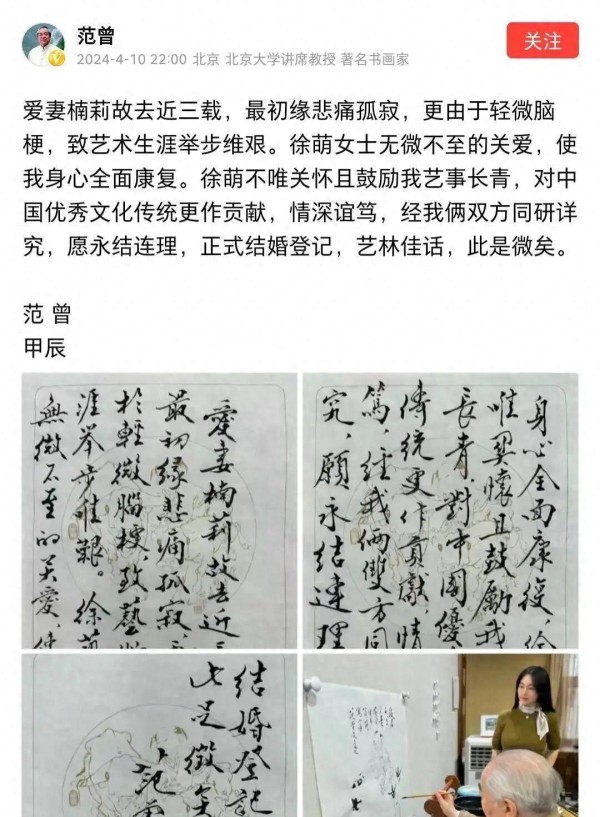 范曾
关注
2024-4-10 22:00 北京 北京大学讲席教授 著名书画家
爱妻楠莉故去近三载，最初缘悲痛孤寂，更由于轻微脑
梗，致艺术生涯举步维艰。徐萌女士无微不至的关爱，使
我身心全面康复。徐萌不唯关怀且鼓励我艺事长青，对中
国优秀文化传统更作贡献，情深谊笃，经我俩双方同研详
究，愿永结连理，正式结婚登记，艺林佳话，此是微矣。
范 曾
甲辰
愛妻楠莉故去近三
最初缘悲痛孤寂，
於輕微腦梗，致藝
涯举步唯艱。徐萌
無微不至的关愛，使
身心全面康復，徐
唯関懷且鼓勵我
長青，對中國優
傳统更作貢獻，情
篤，經我俩雙方同
究，願永结連理
结婚登记
此足微矣
范曾